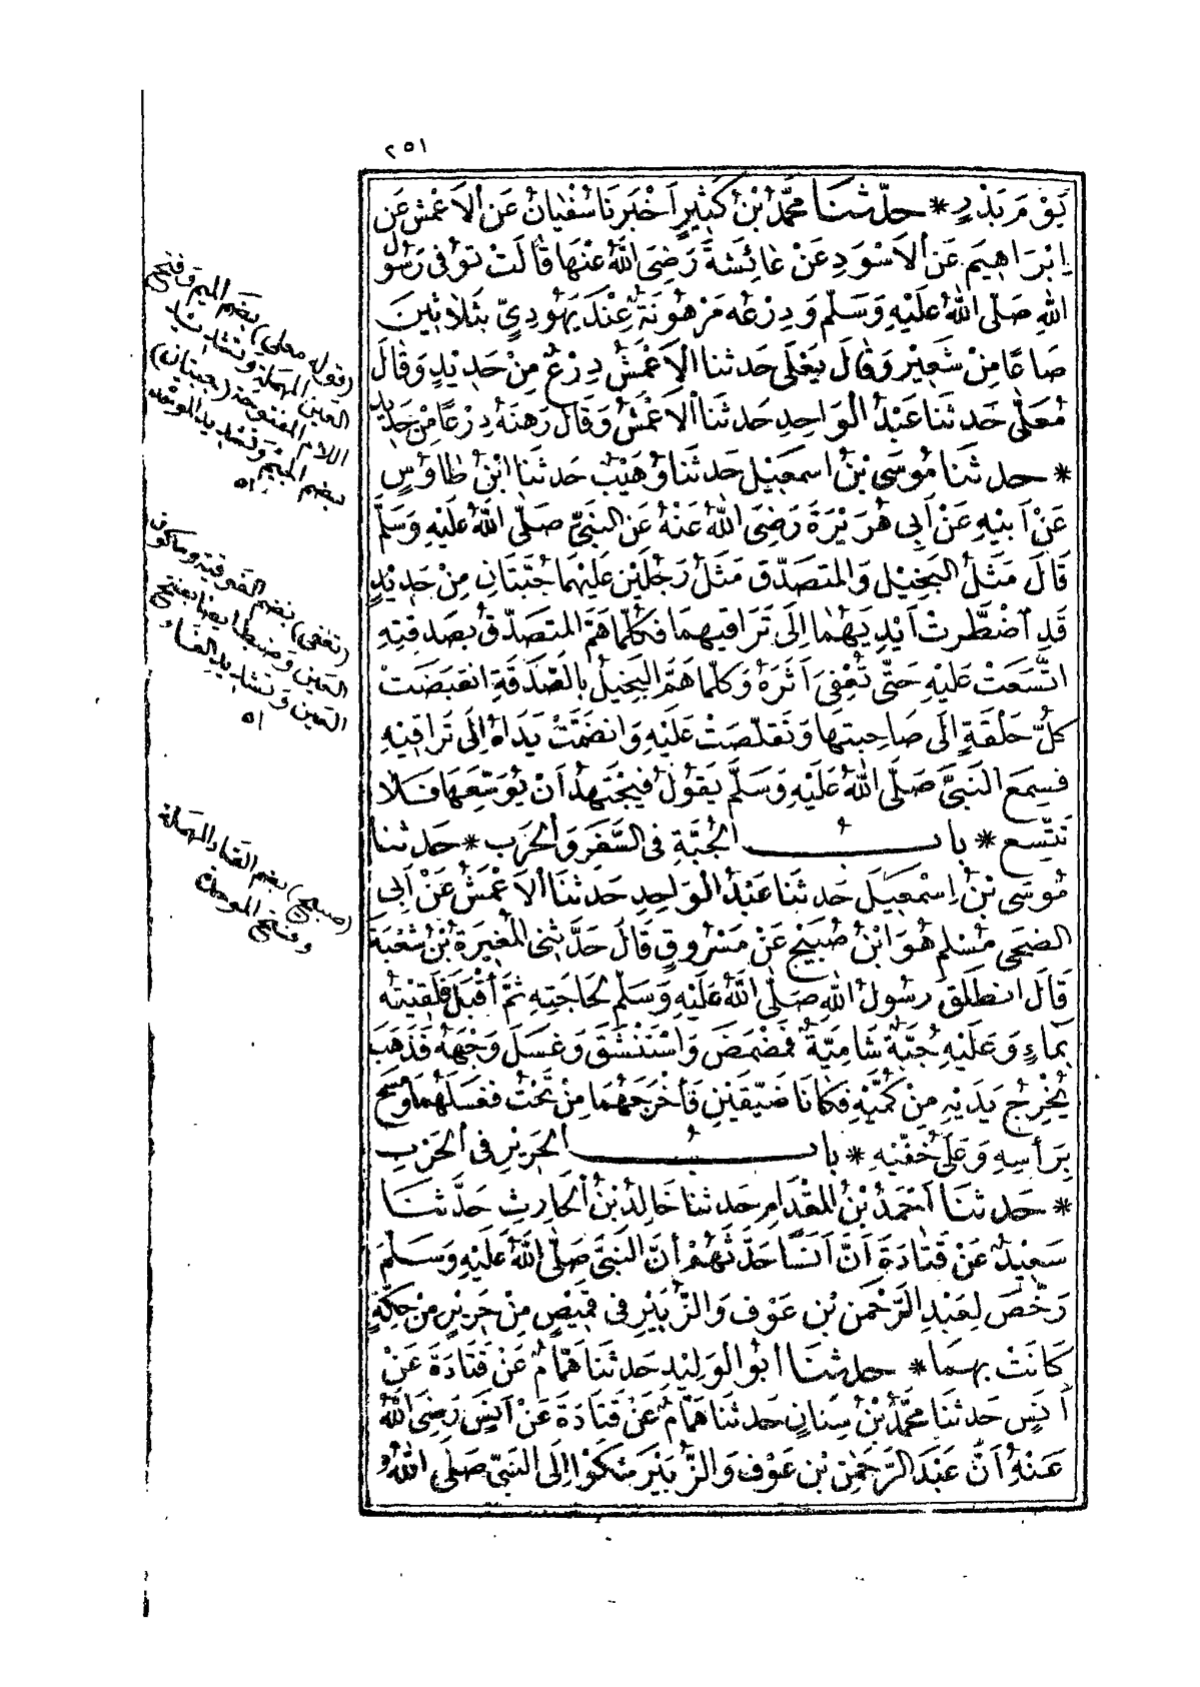 ٢٥١
يَوْمَ بَدْرٍ * حدّثنا مُحَمَّدُ بْنُ كَثِيرٍ أَخْبَرَنَا سُفْيَانُ عَنِ الْأَعْمَشِ عَنْ
إِبْرَاهِيمَ عَنِ الْأَسْوَدِ عَنْ عَائِشَةَ رَضِيَ اللهُ عَنْهَا قَالَتْ تُوُفِّيَ رَسُولُ
اللهِ صَلَّى اللهُ عَلَيْهِ وَسَلَّمَ وَدِرْعُهُ مَرْهُونَةٌ عِنْدَ يَهُودِيٍّ بِثَلَاثِينَ
صَاعًا مِنْ شَعِيرٍ وَقَالَ يَعْلَى حَدثنا الْأَعْمَشُ دِرْعٌ مِنْ حَدِيدٍ وَقَالَ
مُعَلًّى حَدثنَا عَبْدُ الْوَاحِدِ حَدثنَا الْأَعْمَشُ وَقَالَ رَهَنَهُ دِرْعًا مِنْ حَدِيدٍ
* حدثنا مُوسَى بْنُ اسمعِيل حَدثنَا وُهَيْبٌ حَدثنَا ابْنُ طَاوُسٍ
عَنْ أَبِيهِ عَنْ أَبِي هُرَيْرَةَ رَضِيَ اللهُ عَنْهُ عَنِ النَّبِيِّ صَلَّى اللهُ عَلَيْهِ وَسَلَّمَ
قَالَ مَثَلُ الْبَخِيلِ وَالْمُتَصَدِّقِ مَثَلُ رَجُلَيْنِ عَلَيْهِمَا جُبَّتَانِ مِنْ حَدِيدٍ
قَدِ اضْطَّرَّتْ أَيْدِيَهُمَا إِلَى تَرَاقِيهِمَا فَكُلَّمَا هَمَّ الْمُتَصَدِّقُ بِصَدَقَتِهِ
اتَّسَعَتْ عَلَيْهِ حَتَّى تُعْفِيَ أَثَرَهُ وَكُلَّمَا هَمَّ الْبَخِيلُ بِالصَّدَقَةِ انْقَبَضَتْ
كُلُّ حَلْقَةٍ إِلَى صَاحِبَتِهَا وَتَقَلَّصَتْ عَلَيْهِ وَانْضَمَّتْ يَدَاهُ إِلَى تَرَاقِيهِ
فَسَمِعَ النَّبِيَّ صَلَّى اللهُ عَلَيْهِ وَسَلَّمَ يَقُولُ فَيَجْتَهِدُ أَنْ يُوَسِّعَهَا فَلَا
تَتَّسِع * بابُ الْجُبَّةِ فِي السَّفَرِ وَالْحَرْبِ * حَدثنا
مُوسَى بْنُ إِسْمٰعِيلَ حَدثنَا عَبْدُ الْوَاحِدِ حَدثنَا الْأَعْمَشُ عَنْ أَبِي
الضُّحَى مُسْلِمٍ هُوَ ابْنُ صُبَيْحٍ عَنْ مَسْرُوقٍ قَالَ حَدَّثَنِي الْمُغِيرَةُ بْنُ شُعْبَةَ
قَالَ انْطَلَقَ رَسُولُ اللهِ صَلَّى اللهُ عَلَيْهِ وَسَلَّمَ لِحَاجَتِهِ ثُمَّ أَقْبَلَ فَلَقِيتُهُ
بِمَاءٍ وَعَلَيْهِ جُبَّةٌ شَامِيَّةٌ فَمَضْمَضَ وَاسْتَنْشَقَ وَغَسَلَ وَجْهَهُ فَذَهَبَ
يُخْرِجُ يَدَيْهِ مِنْ كُمَّيْهِ فَكَانَا ضَيِّقَيْنِ فَأَخْرَجَهُمَا مِنْ تَحْتُ فَغَسَلَهُمَا وَمَسَحَ
بِرَأْسِهِ وَعَلَى خُفَّيْهِ * بابُ الْحَرِيرِ فِي الْحَرْبِ
* حَدثنَا أَحْمَدُ بْنُ الْمِقْدَامِ حَدثنا خَالِدُ بْنُ الْحَارِثِ حَدَّثنَا
سَعِيدٌ عَنْ قَتَادَةَ أَنَّ أَنَسًا حَدَّثَهُمْ أَنَّ النَّبِيَّ صَلَّى اللهُ عَلَيْهِ وَسَلَّمَ
رَخَّصَ لِعَبْدِ الرَّحْمَنِ بْنِ عَوْفٍ وَالزُّبَيْرِ فِي قَمِيصٍ مِنْ حَرِيرٍ مِنْ حِكَّةٍ
كَانَتْ بِهِمَا * حدثنا ابُو الْوَلِيدِ حَدثنَا هَمَّامٌ عَنْ قَتَادَةَ عَنْ
أَنَسٍ حَدثنَا مُحَمَّدُ بْنُ سِنَانٍ حَدثنَا هَمَّامٌ عَنْ قَتَادَةَ عَنْ أَنَسٍ رَضِيَ اللهُ
عَنْهُ أَنَّ عَبْدَ الرَّحْمٰنِ بْنَ عَوْفٍ وَالزُّبَيْرَ شَكَوَا إِلَى النَّبِيِّ صَلَّى اللهُ
(قوله معلى) بضم الميم وفتح
العين المهملة وتشديد
اللام المفتوحة (جبتان)
بضم الجيم وتشديد الموحدة
اه
(تعفى) بضم الفوقية وسكون
العين وضبط ايضا بفتح
العين وتشديد الفاء
اه
(صبيح) بضم الصاد المهملة
وفتح الموحدة